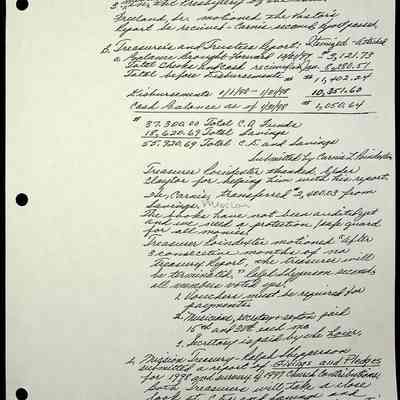 Freeland, Sr. motioned the Pastor's
Report be received - Carnie second, all passed
B. Treasurer's and Trustees Report: Itemized - attached
a. Balance brought Forward 12/31/97 $3,121.73
Total checks and cash received for Jan. 8,280.51
Total before disbursements $11,402.24
Disbursements 1/1/98 - 1/31/98 10,351.60
Cash Balance as of 1/31/98 $1,050.64
$37,300.00 Total C.D. Funds
18,620.69 Total Savings
55,920.69 Total C.D. and Savings
Submitted by Carnie L. Poindexter
Treasurer Poindexter thanked Elder
Claytor for helping him with his report.
He, Carnie, transferred $2,400.03 from
Savings, Mexican
The books have not been audited yet
and we need a protection/safe guard
for all monies.
Treasurer Poindexter motioned "After
3 consecutive months of no
Treasury Report, the treasurer will
be terminated." Ralph second,
all members voted yes.
1. Vouchers must be required for
payments.
2. Musician, secretary & sexton paid
15th and 30th each mo.
3. Secretary is paid by the hour.
b. Mission Treasury - Ralph
submitted a report of Givings and Pledges
for 1998 and survey of 1997 Church Contributions
Both Treasurers will take a close
look at C.D.s and Savings and